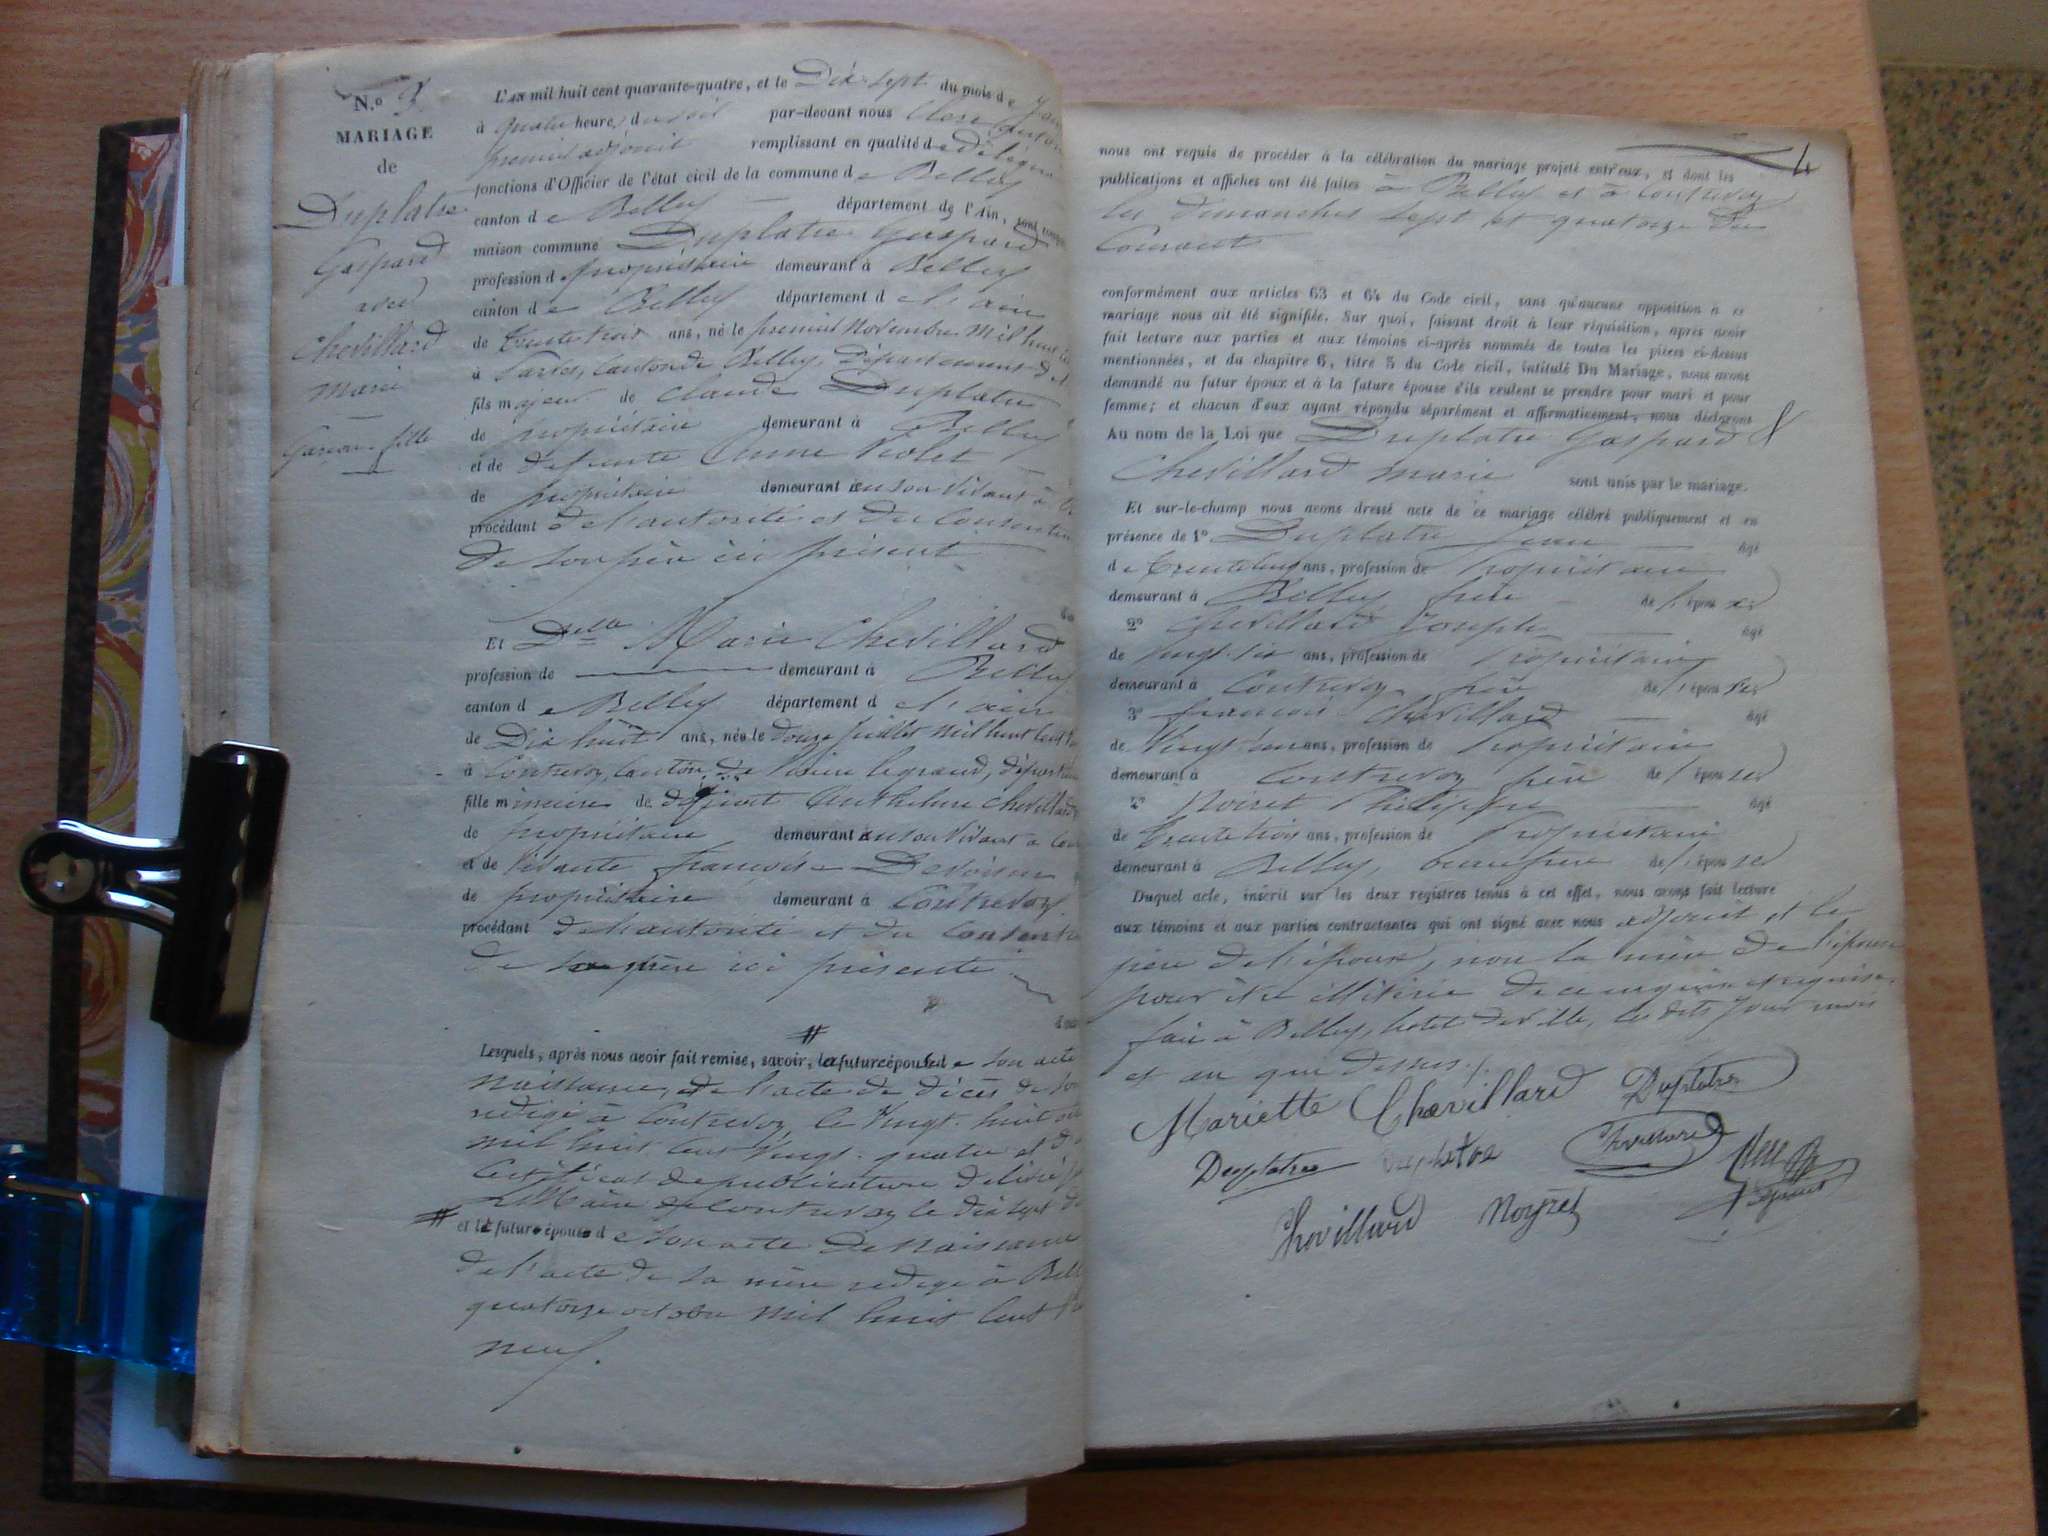 N.o 3
MARIAGE
de
Duplatre
Gaspard
avec
Chevillard
Marie
Garçon. fille
L'AN mil huit cent quarante-quatre, et le Dix-sept du mois de
à quatre heures du soir par-devant nous
premier adjoint remplissant en qualité de délégué
fonctions d'Officier de l'état civil de la commune de Belley
canton de Belley département de l'Ain, sont
maison commune Duplatre Gaspard
profession de propriétaire demeurant à Belley
canton de Belley département de l'ain
de Trente trois ans, né le premier Novembre mil huit
à Parves, Canton de Belley, Département de
fils majeur de Claude Duplatre
de propriétaire demeurant à Belley
et de defunte Anne Violet
de propriétaire demeurant en son vivant à
procédant de l'autorité et du
de son père ici présent
Et Delle Marie Chevillard
profession de demeurant à Belley
canton de Belley département de l'ain
de Dix huit ans, née le Douze juillet mil huit cent
à Contrevoz, Canton de Virieu legrand,
fille mineure de défunt Anthelme Chevillard
de propriétaire demeurant en son vivant à
et de vivante françoise
de propriétaire demeurant à Contrevoz
procédant de l'autorité et du
de sa mère ici présente
#
Lesquels, après nous avoir fait remise, savoir, la future épouse de son acte
Naissance, de l'acte de décès de son
redigé à Contrevoz le Vingt-huit
mil huit cent Vingt-quatre et d
Certificat de publication délivré
le Maire de Contrevoz le dix sept
# et le futur époux de son acte de Naissance
de l'acte de sa mère redigé à
quatorze octobre mil huit cent
neuf.
4
nous ont requis de procéder à la célébration du mariage projeté entr'eux, et dont les
publications et affiches ont été faites à Belley et à Contrevoz
les dimanches sept et quatorze du
Courant
conformément aux articles 63 et 64 du Code civil, sans qu'aucune opposition à ce
mariage nous ait été signifiée. Sur quoi, faisant droit à leur réquisition, après avoir
fait lecture aux parties et aux témoins ci-après nommés de toutes les pièces ci-dessus
mentionnées, et du chapitre 6, titre 5 du Code civil, intitulé Du Mariage, nous avons
demandé au futur époux et à la future épouse s'ils veulent se prendre pour mari et pour
femme; et chacun d'eux ayant répondu séparément et affirmativement, nous déclarons
Au nom de la Loi que Duplatre Gaspard &
Chevillard Marie sont unis par le mariage.
Et sur-le-champ nous avons dressé acte de ce mariage célébré publiquement et en
présence de 1o Duplatre Jean âgé
de ans, profession de Propriétaire
demeurant à Belley frère de l'époux
2o Chevillard Joseph âgé
de Vingt-six ans, profession de Propriétaire
demeurant à Contrevoz frère de l'épouse
3o françois Chevillard âgé
de ans, profession de Propriétaire
demeurant à Contrevoz frère de l'épouse
4o Noiret Philippe âgé
de Trente trois ans, profession de Propriétaire
demeurant à Belley, beaufrère de l'épouse
Duquel acte, inscrit sur les deux registres tenus à cet effet, nous avons fait lecture
aux témoins et aux parties contractantes qui ont signé avec nous adjoint et le
père de l'époux, non la mère de l'épouse
pour être illitérée de ce enquise et requise.
fait à Belley, hotel de Ville, les dits jour mois
et an que dessus.
Mariette Chevillard Duplatre
Duplatre Duplatre Chevillard
Chevillard Noyret